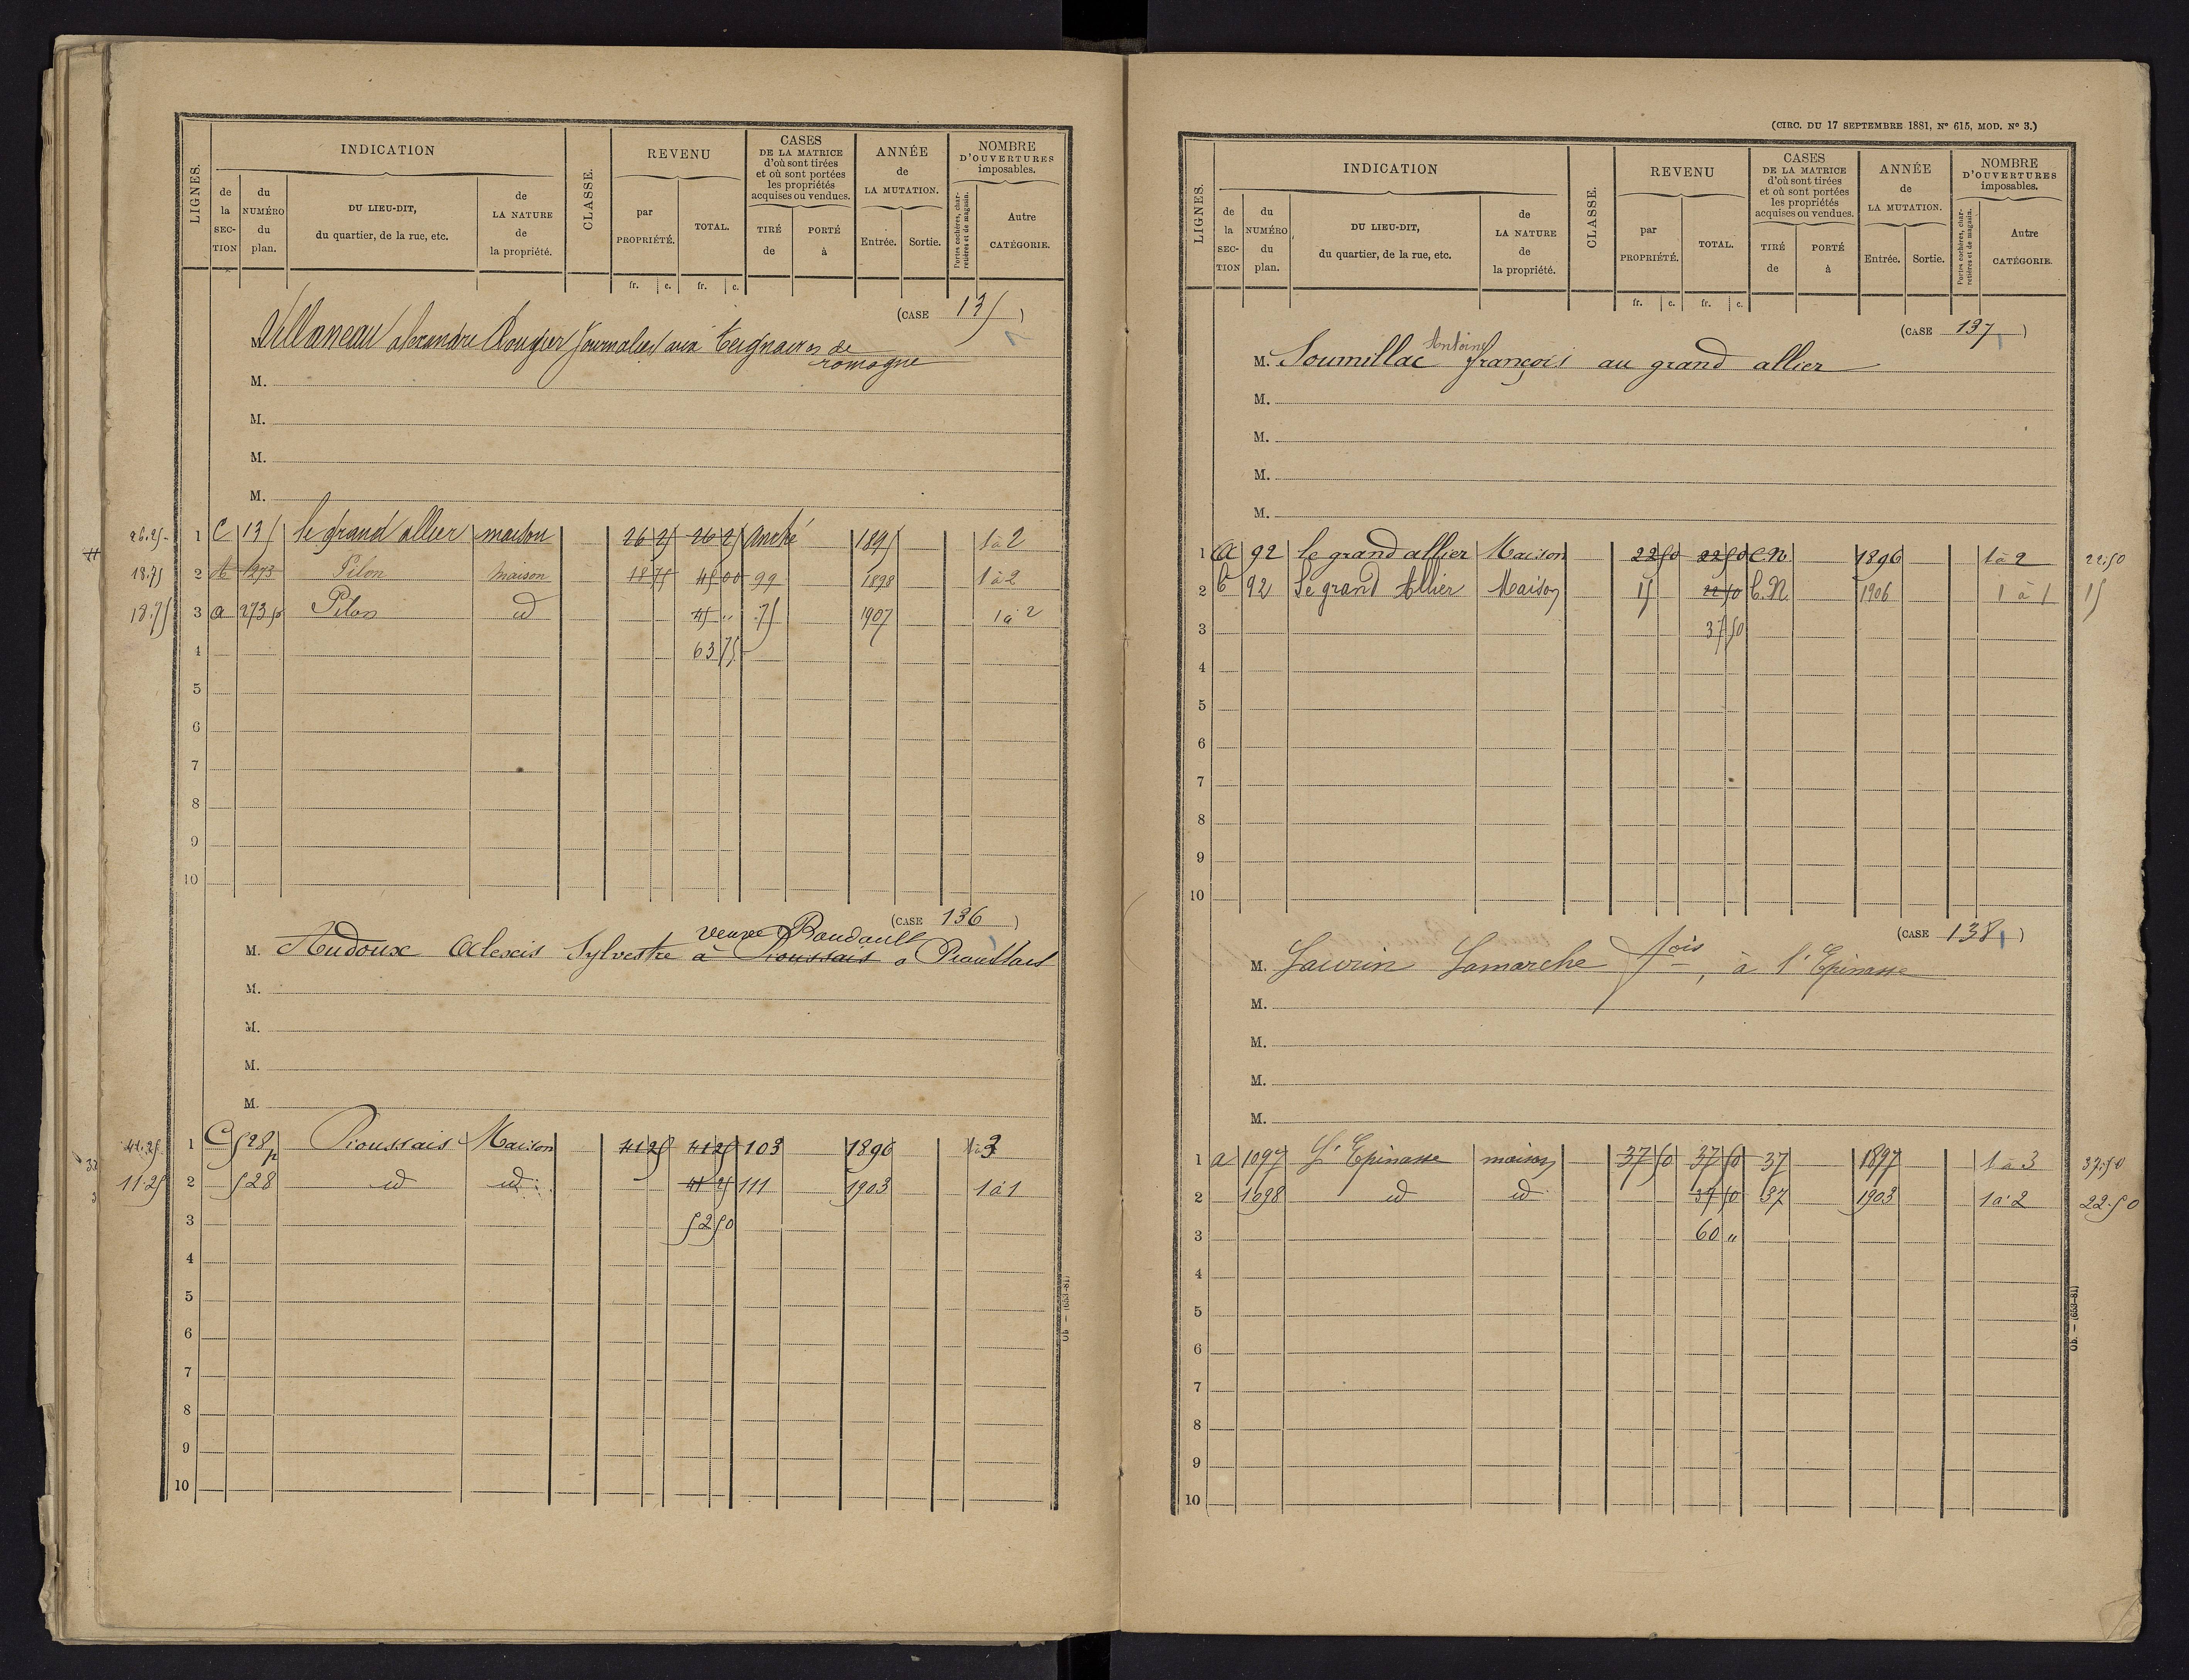 LIGNES.
INDICATION
de la SECTION
du NUMÉRO du plan.
DU LIEU-DIT, du quartier, de la rue, etc.
de LA NATURE de la propriété.
CLASSE.
REVENU
par PROPRIÉTÉ.
TOTAL.
CASES DE LA MATRICE d'où sont tirées et où sont portées les propriétés acquises ou vendues.
TIRÉ de
PORTÉ à
ANNÉE de LA MUTATION.
Entrée.
Sortie.
NOMBRE D'OUVERTURES imposables.
Portes cochères, charretières et de magasin.
Autre CATÉGORIE.
fr. c. fr. c.
(CASE 135)
M. Villaneau alexandre Rougier Journalier aux Teignaires de
romagne
M.
M.
M.
M.
26.25 1 C 135 le grand allier maison 26 25 26 25 Anché 1895 1 à 2
18.75 2 A 273 Pilon maison 18 75 45 00 99 1898 1 à 2
18.75 3 a 273 p Pilon id 45 " 75 1907 1 à 2
4 63 75
5
6
7
8
9
10
(CASE 136)
veuve Baudault
M. Audoux Alexis Sylvestre à Pioussais à Pioussais
M.
M.
M.
M.
41.25 1 C 528 p Pioussais Maison 41 25 41 25 103 1896 1 à 3
11.25 2 528 id id 41 25 111 1903 1 à 1
3 52 50
4
5
6
7
8
9
10
Ob. — (653-81)
(CIRC. DU 17 SEPTEMBRE 1881, N° 615, MOD. N° 3.)
LIGNES.
INDICATION
de la SECTION
du NUMÉRO du plan.
DU LIEU-DIT, du quartier, de la rue, etc.
de LA NATURE de la propriété.
CLASSE.
REVENU
par PROPRIÉTÉ.
TOTAL.
CASES DE LA MATRICE d'où sont tirées et où sont portées les propriétés acquises ou vendues.
TIRÉ de
PORTÉ à
ANNÉE de LA MUTATION.
Entrée.
Sortie.
NOMBRE D'OUVERTURES imposables.
Portes cochères, charretières et de magasin.
Autre CATÉGORIE.
fr. c. fr. c.
(CASE 137)
Antoine
M. Soumillac françois au grand allier
M.
M.
M.
M.
1 C 92 le grand allier Maison 22 50 22 50 C.N. 1896 1 à 2 22.50
2 C 92 Le grand Allier Maison 15 22 50 C.N. 1906 1 à 1 15
3 37 50
4
5
6
7
8
9
10
(CASE 138)
M. Laurin Lamarche fois, à l'Epinasse
M.
M.
M.
M.
1 a 1097 L'Epinasse maison 37 50 37 50 37 1897 1 à 3 37.50
2 1098 id id 37 50 37 1903 1 à 2 22.50
3 60 "
4
5
6
7
8
9
10
Ob. — (653-81)